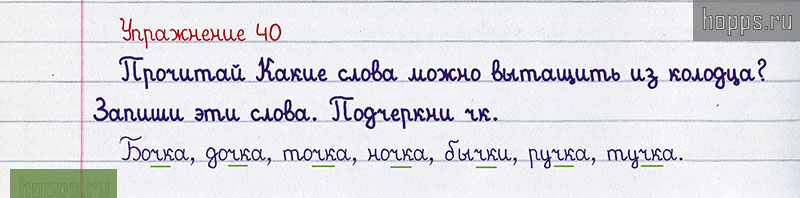 Упражнение 40
hopps.ru
Прочитай Какие слова можно вытащить из колодца?
Запиши эти слова. Подчеркни чк.
Бочка, дочка, точка, ночка, бычки, ручка, тучка.
hopps.ru